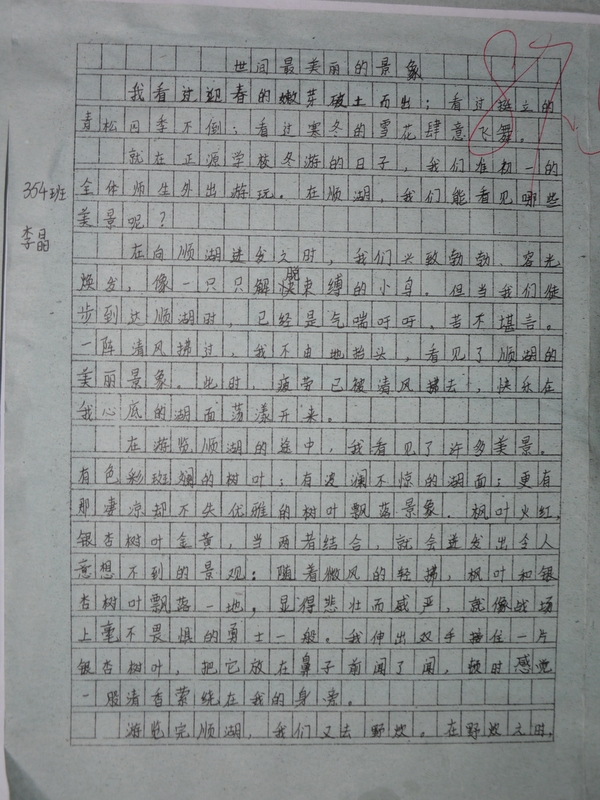 世间最美丽的景象
我看过迎春的嫩芽破土而出；看过挺立的
青松四季不倒；看过寒冬的雪花肆意飞舞。
就在正源学校冬游的日子，我们准初一的
全体师生外出游玩。在顺湖，我们能看见哪些
美景呢？
在向顺湖进发之时，我们兴致勃勃、容光
焕发，像一只只解脱束缚的小鸟。但当我们徒
步到达顺湖时，已经是气喘吁吁、苦不堪言。
一阵清风拂过，我不由地抬头，看见了顺湖的
美丽景象。此时，疲劳已被清风拂去，快乐在
我心底的湖面荡漾开来。
在游览顺湖的途中，我看见了许多美景。
有色彩斑斓的树叶；有波澜不惊的湖面；更有
那凄凉却不失优雅的树叶飘落景象。枫叶火红，
银杏树叶金黄，当两者结合，就会迸发出令人
意想不到的景观：随着微风的轻拂，枫叶和银
杏树叶飘落一地，显得悲壮而威严，就像战场
上毫不畏惧的勇士一般。我伸出双手接住一片
银杏树叶，把它放在鼻子前闻了闻，顿时感觉
一股清香萦绕在我的身旁。
游览完顺湖，我们又去野炊。在野炊之时，
354班
李晶
87